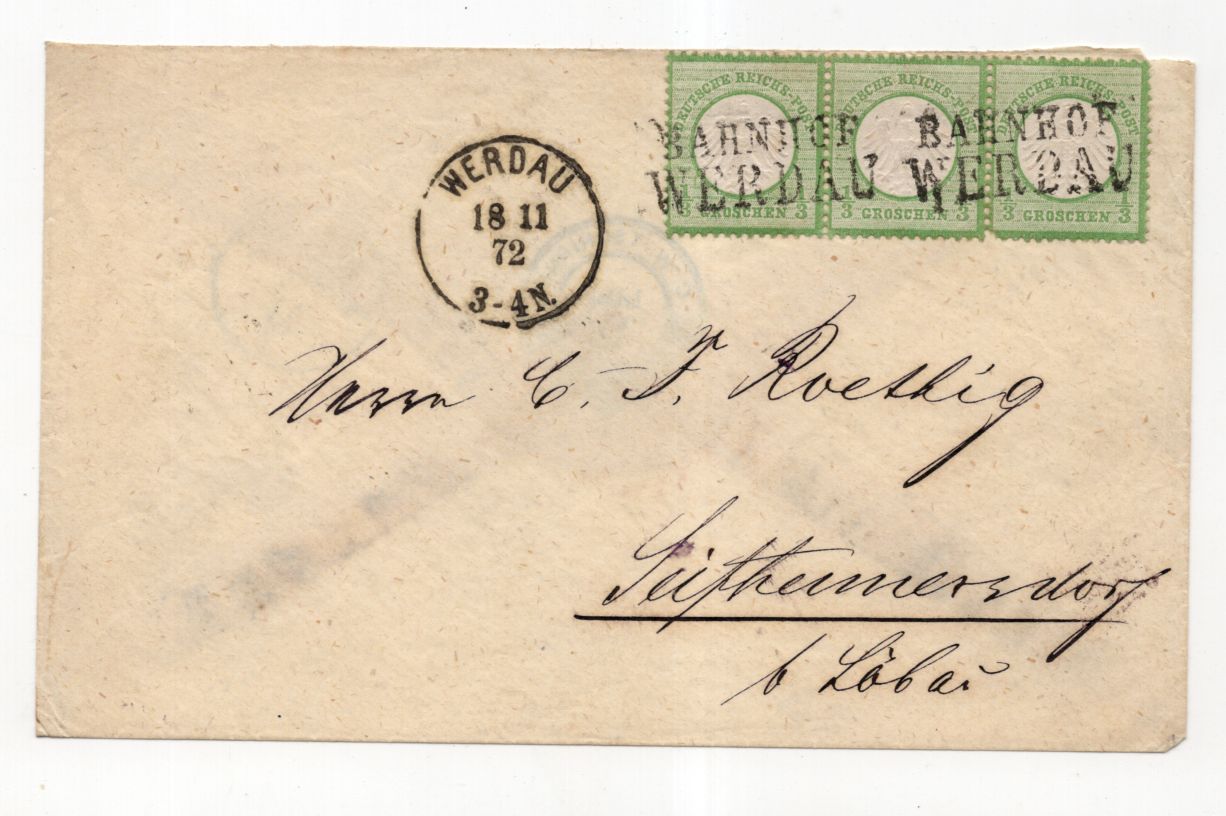 DEUTSCHE REICHS-POST DEUTSCHE REICHS-POST DEUTSCHE REICHS-POST
BAHNHOF BAHNHOF
WERDAU WERDAU
1/3 GROSCHEN 1/3 1/3 GROSCHEN 1/3 1/3 GROSCHEN 1/3
WERDAU
18 11
72
3-4N.
Herrn C. F. Roethig
Seifhennersdorf
b Löbau